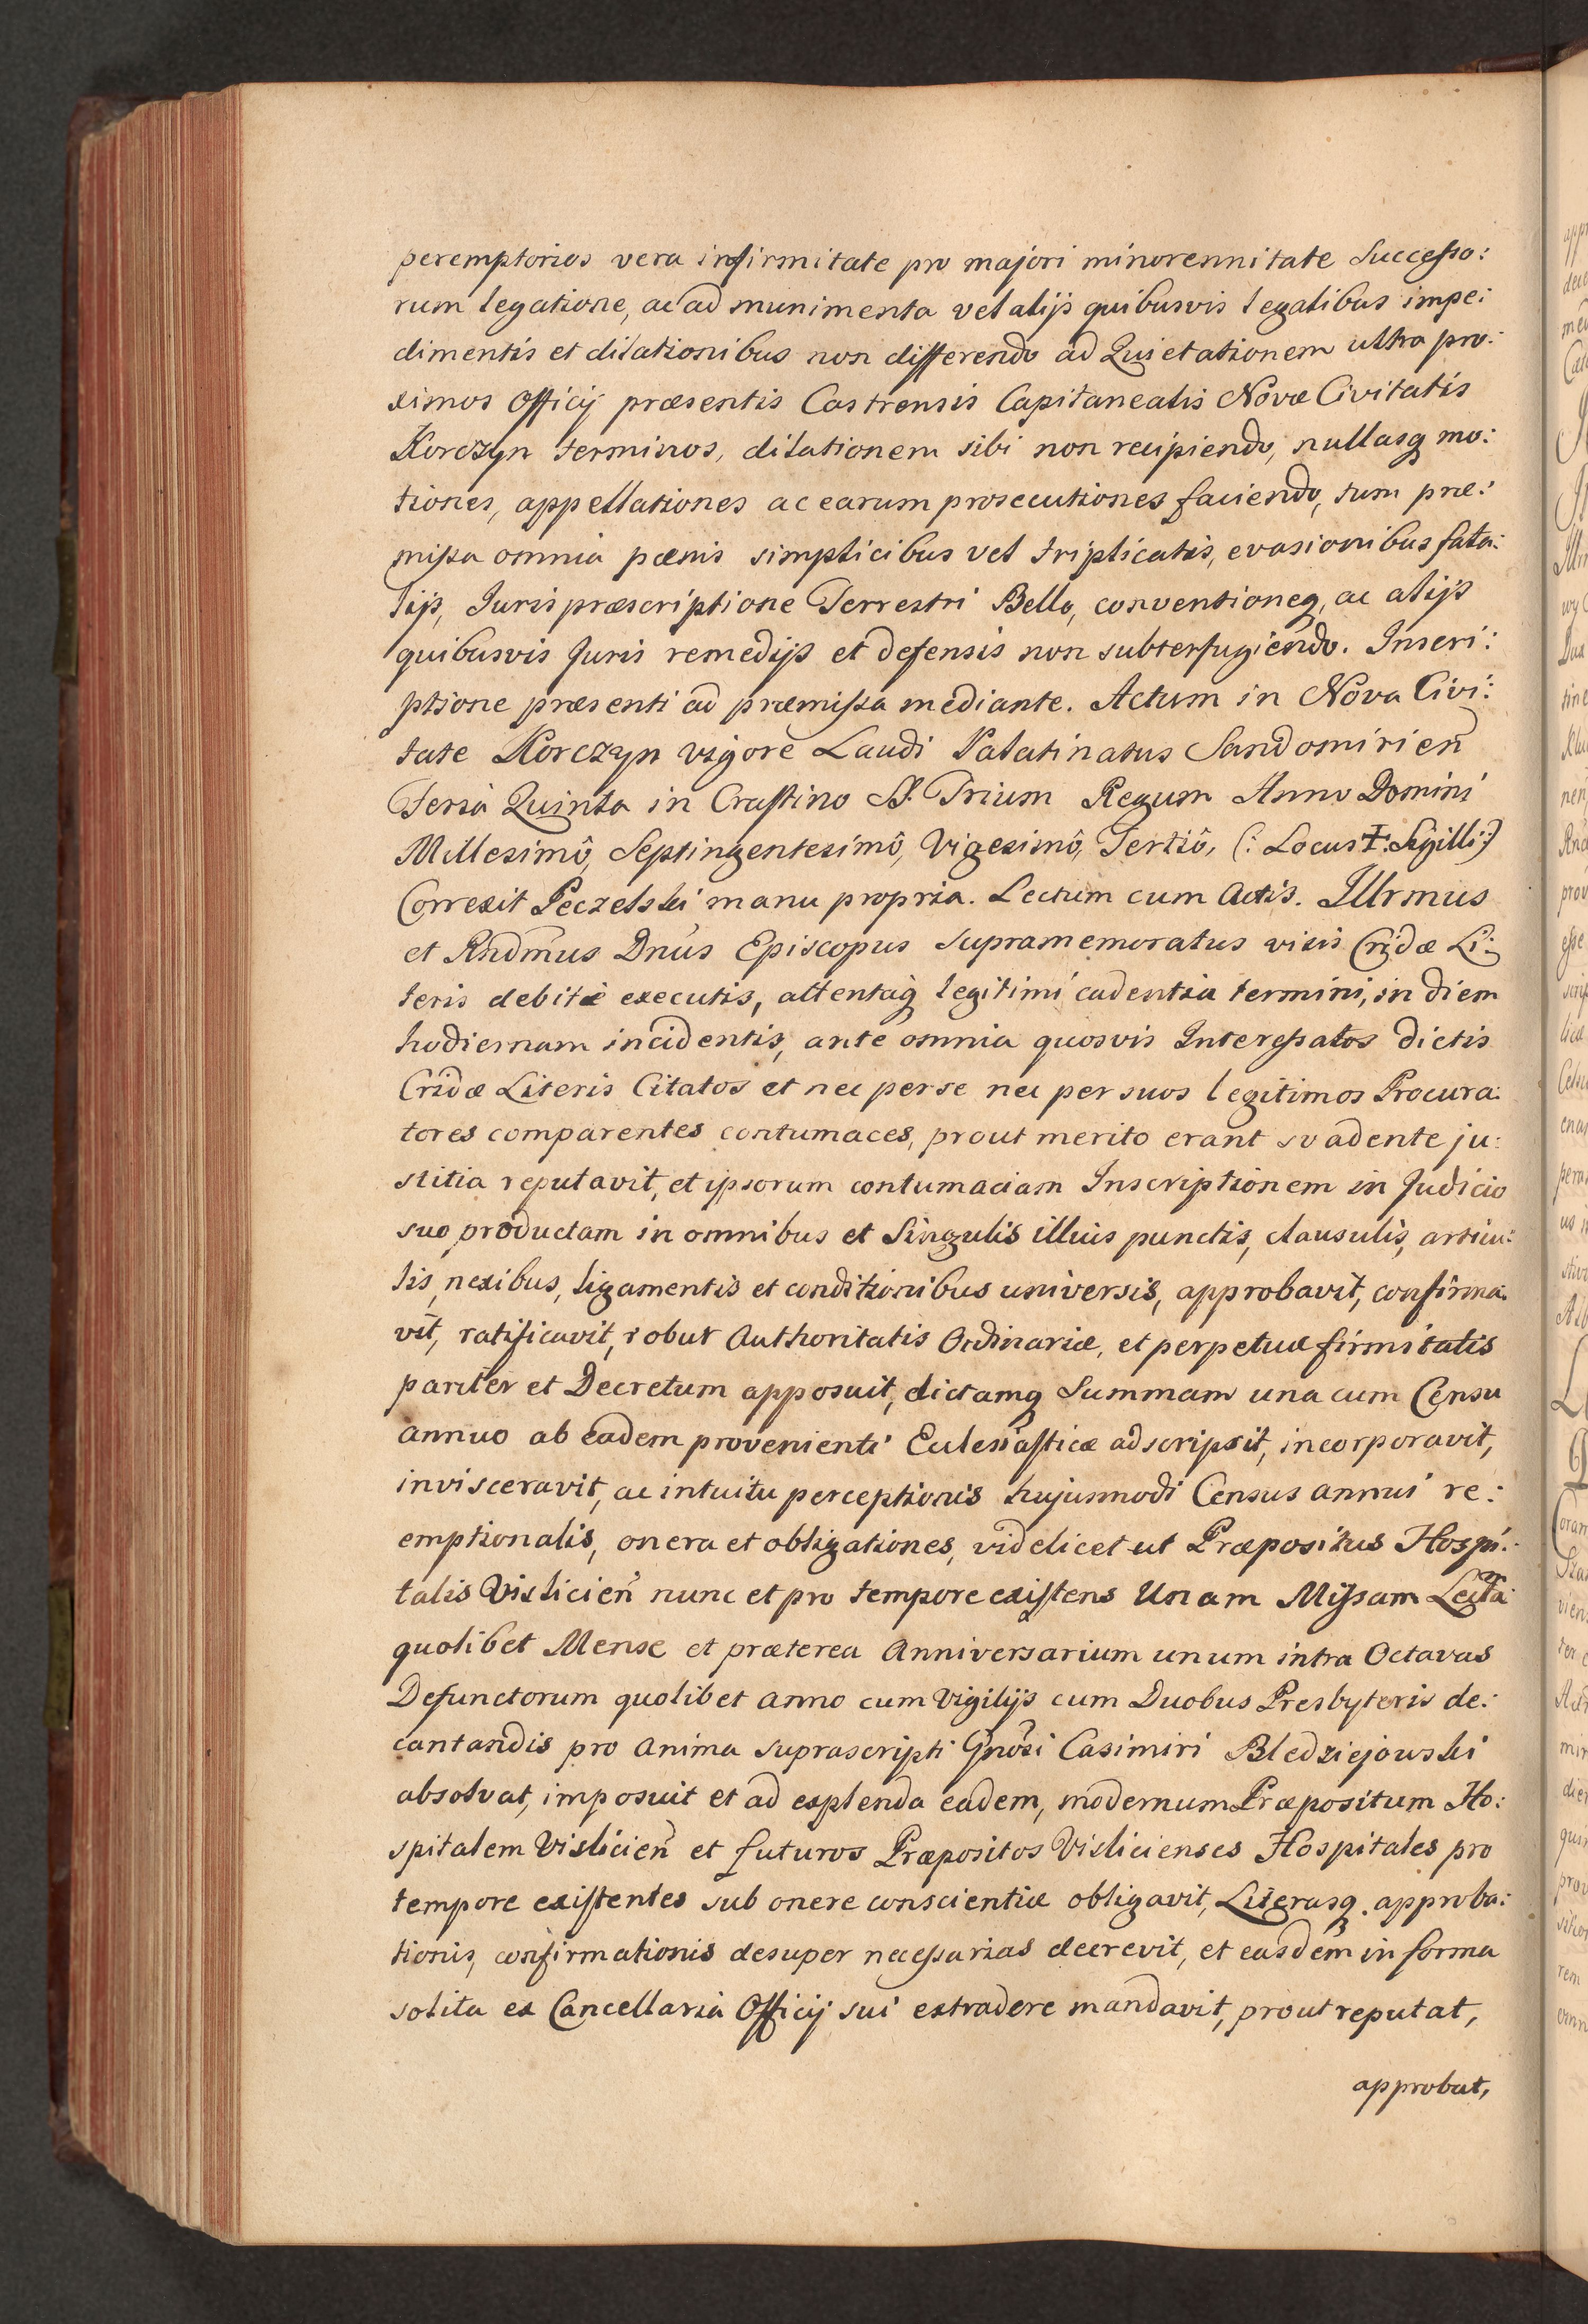 peremptorios vera infirmitate pro majori minorennitate Successo:
rum legatione, ac ad munimenta vel alijs quibusvis legalibus impe:
dimentis et dilationibus non differendo ad Quietationem ultra pro:
ximos Officij præsentis Castrensis Capitanealis Novæ Civitatis
Korczyn terminos, dilationem sibi non recipiendo, nullasq mo:
tiones, appellationes ac earum prosecutiones faciendo, tum præ:
missa omnia pænis simplicibus vel triplicatis, evasionibus fata:
lijs, Juris præscriptione Terrestri Bello, conventioneq, ac alijs
quibusvis Juris remedijs et defensis non subterfugiendo. Inscri:
ptione præsenti ad præmissa mediante. Actum in Nova Civi:
tate Korczyn vigore Laudi Palatinatus Sandomirień
Feria Quinta in Crastino SS. Trium Regum Anno Domini
Millesimô, Septingentesimô, Vigesimô, Tertiô, (: Locus ✝ Sigilli:)
Correxit Peczelski manu propria. Lectum cum Actis. Illrmus
et Rndmus Dnus Episcopus supramemoratus visis Cridæ Li:
teris debite executis, attentaq legitimi cadentia termini, in diem
hodiernam incidentis, ante omnia quosvis Interessatos dictis
Cridæ Literis Citatos et nec per se nec per suos legitimos Procura:
tores comparentes contumaces, prout merito erant svadente ju:
stitia reputavit, et ipsorum contumaciam Inscriptionem in Judicio
suo productam in omnibus et Singulis illius punctis, clausulis, articu:
lis, nexibus, ligamentis et conditionibus universis, approbavit, confirma:
vit, ratificavit, robur Authoritatis Ordinariæ, et perpetuæ firmitatis
pariter et Decretum apposuit, dictamq Summam una cum Censu
annuo ab eadem provenienti Eclesiasticæ adscripsit, incorporavit,
invisceravit, ac intuitu perceptionis hujusmodi Census annui re:
emptionalis, onera et obligationes, videlicet ut Præpositus Hospi:
talis Vislicień nunc et pro tempore existens Unam Missam Lectã
quolibet Mense et præterea Anniversarium unum intra Octavas
Defunctorum quolibet anno cum Vigilijs cum Duobus Presbyteris de:
cantandis pro Anima suprascripti Gnosi Casimiri Bledziejowski
absolvat, imposuit et ad explenda eadem, modernum Præpositum Ho:
spitalem Vislicień et futuros Præpositos Vislicienses Hospitales pro
tempore existentes sub onere conscientiæ obligavit, Literasq. approba:
tionis, confirmationis desuper necessarias decrevit, et easdem in forma
solita ex Cancellaria Officij sui extradere mandavit, prout reputat,
approbat,